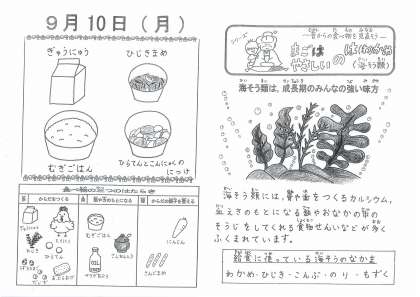 9月10日（月）
ぎゅうにゅう
ひじきまめ
むぎごはん
ひらてんとこんにゃくの
にっけ
食べ物の三つのはたらき
からだをつくる
熱や力のもとになる
からだの調子を整える
ぎゅうにゅう
とりにく
ひらてん
むぎごはん
さとう
にんじん
シリーズ
―昔からの食べ物を見直そう―
まごは
やさしい
の
は
わかめ
(海そう類)
海そう類は、成長期のみんなの強い味方
海そう類には、骨や歯をつくるカルシウム、
血えきのもとになる鉄やおなかの中の
そうじをしてくれる食物せんいなどが多く
ふくまれています。
給食に使っている海そうのなかま
わかめ・ひじき・こんぶ・のり・もずく